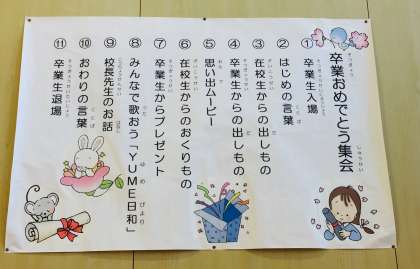 卒業おめでとう集会
①卒業生入場
②はじめの言葉
③在校生からの出しもの
④卒業生からの出しもの
⑤思い出ムービー
⑥在校生からのおくりもの
⑦卒業生からプレゼント
⑧みんなで歌おう「YUME日和」
⑨校長先生のお話
⑩おわりの言葉
⑪卒業生退場